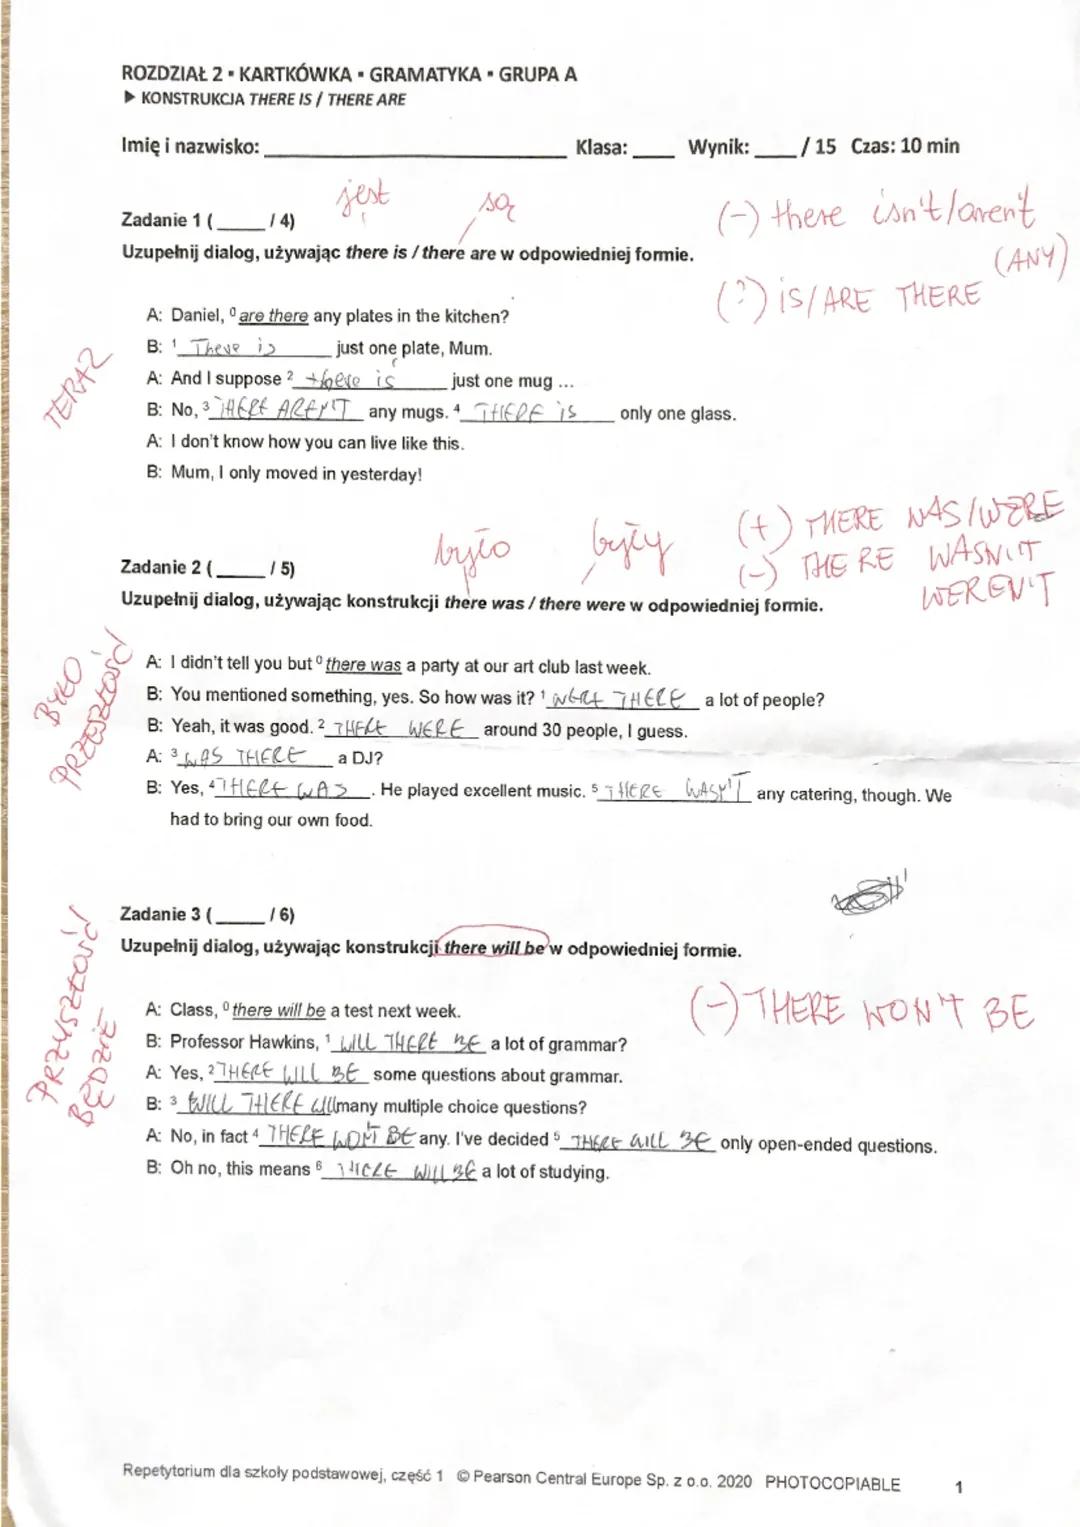 ROZDZIAŁ 2 ▪ KARTKÓWKA ▪ GRAMATYKA ▪ GRUPA A
► KONSTRUKCJA THERE IS / THERE ARE
Imię i nazwisko: ____ Klasa: ____ Wynik: ____ / 15 Czas: 10 min
jest są
(-) there isn't/aren't
(ANY)
(?) IS/ARE THERE
Zadanie 1 (____ / 4)
Uzupełnij dialog, używając there is / there are w odpowiedniej formie.
TERAZ
A: Daniel, ⁰ are there any plates in the kitchen?
B: ¹ There is just one plate, Mum.
A: And I suppose ² there is just one mug ...
B: No, ³ THERE AREN'T any mugs. ⁴ THERE IS only one glass.
A: I don't know how you can live like this.
B: Mum, I only moved in yesterday!
było były
(+) THERE WAS/WERE
(-) THERE WASN'T
WEREN'T
Zadanie 2 (____ / 5)
Uzupełnij dialog, używając konstrukcji there was / there were w odpowiedniej formie.
BYŁO
PRZESZŁOŚĆ
A: I didn't tell you but ⁰ there was a party at our art club last week.
B: You mentioned something, yes. So how was it? ¹ WERE THERE a lot of people?
B: Yeah, it was good. ² THERE WERE around 30 people, I guess.
A: ³ WAS THERE a DJ?
B: Yes, ⁴ THERE WAS. He played excellent music. ⁵ THERE WASN'T any catering, though. We
had to bring our own food.
Zadanie 3 (____ / 6)
Uzupełnij dialog, używając konstrukcji there will be w odpowiedniej formie.
(-) THERE WON'T BE
PRZYSZŁOŚĆ
BĘDZIE
A: Class, ⁰ there will be a test next week.
B: Professor Hawkins, ¹ WILL THERE BE a lot of grammar?
A: Yes, ² THERE WILL BE some questions about grammar.
B: ³ WILL THERE will many multiple choice questions?
A: No, in fact ⁴ THERE WON'T BE any. I've decided ⁵ THERE WILL BE only open-ended questions.
B: Oh no, this means ⁶ THERE WILL BE a lot of studying.
Repetytorium dla szkoły podstawowej, część 1 © Pearson Central Europe Sp. z o.o. 2020 PHOTOCOPIABLE 1